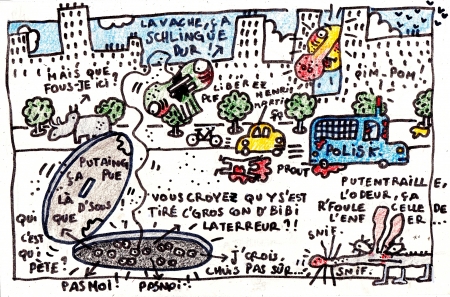 LA VACHE, ÇA
SCHLINGUE
DUR!
MAIS QUE
FOUS-JE ICI?
LIBÉREZ
HENRI
MARTIN
PCF
PIM-POM!
POLISK
PROUT
PUTAING
ÇA PUE
LÀ D'SOUS
QUE
QUI
C'EST
QUI
PÈTE?
VOUS CROYEZ QU Y S'EST
TIRÉ C'GROS CON D'BIBI
LATERREUR?!
J'CROIS,
CHUIS PAS SÛR...
PAS MOI!
PAS MOI!
PUTENTRAILLE,
L'ODEUR, ÇA
R'FOULE CELLE DE
L'ENFER...
SNIF
SNIF